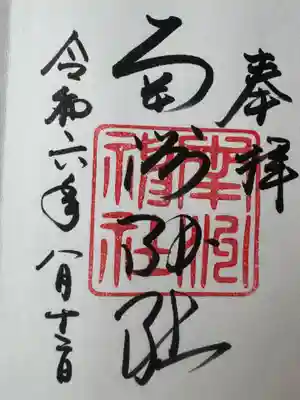 奉拝
南洲神社
令和六年八月十二日